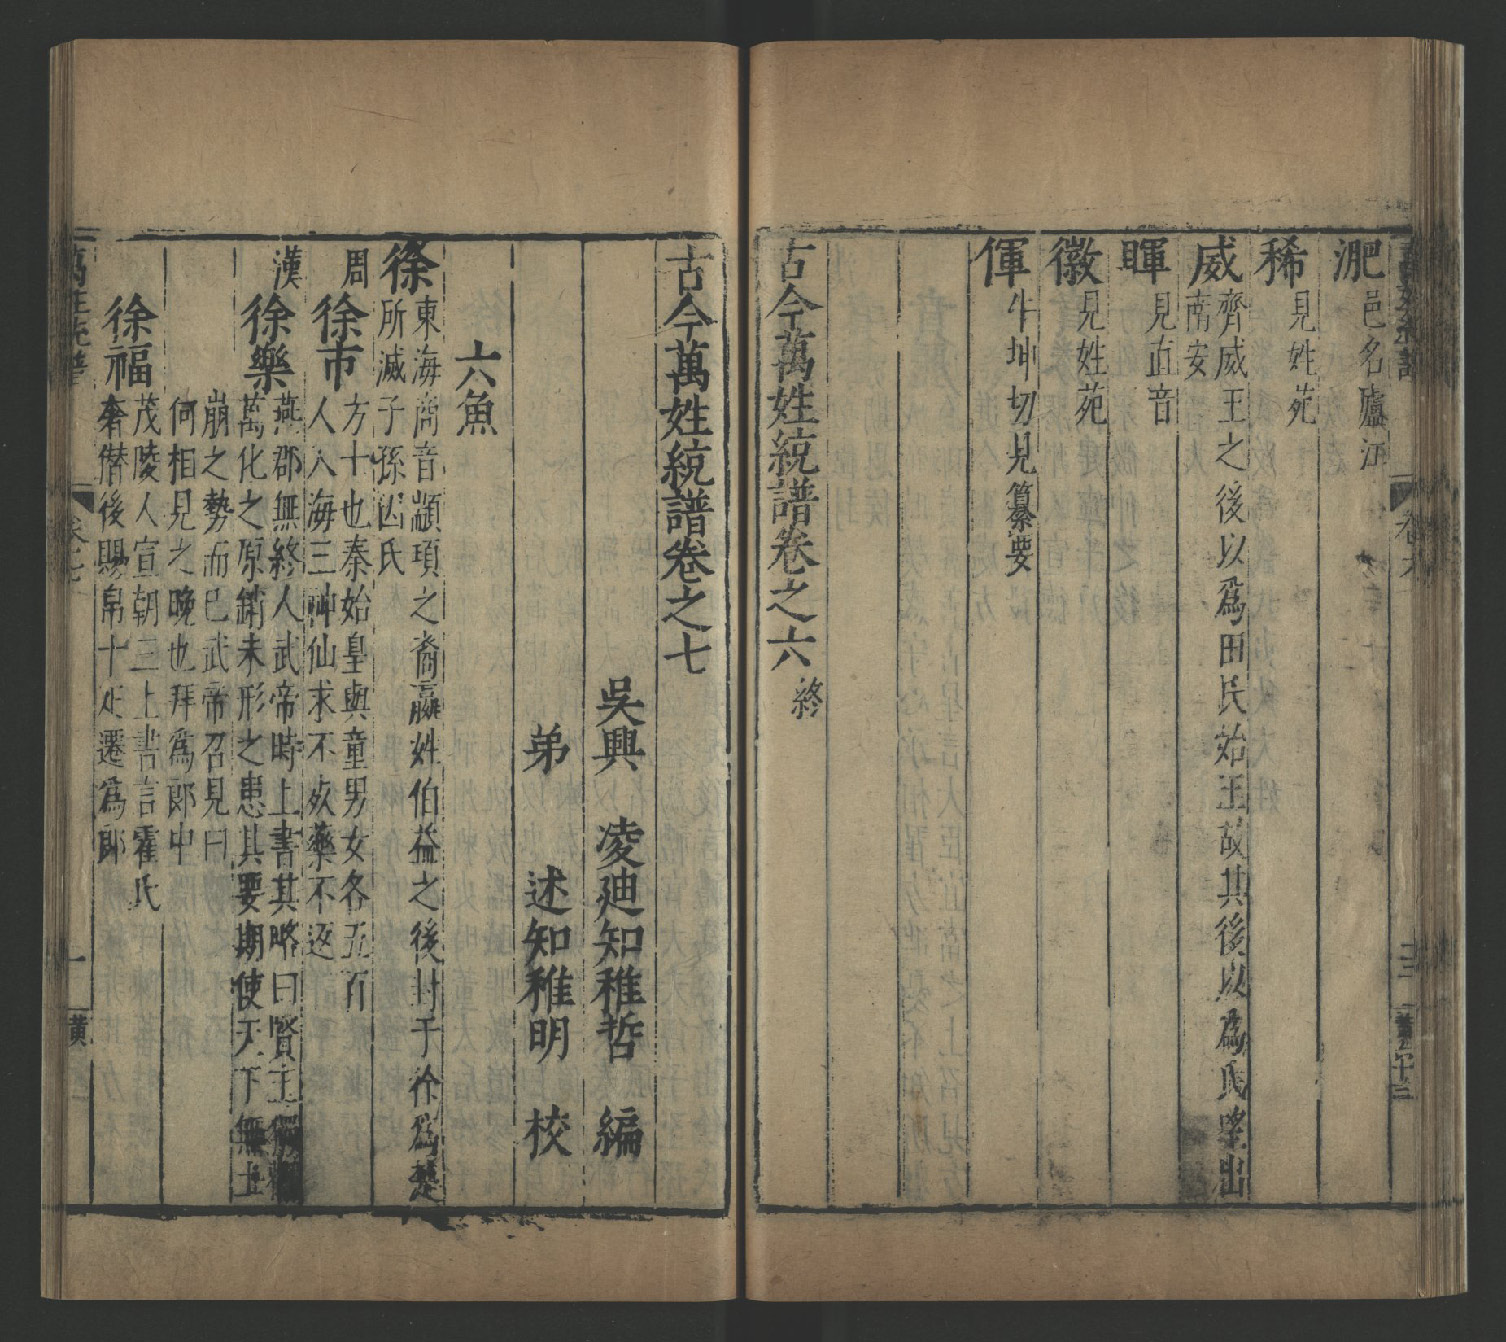 淝邑名廬江
稀見姓苑
威齊威王之後以爲田氏始王故其後以爲氏望出
南安
暉見直音
徽見姓苑
㑮牛坤切見纂要
古今萬姓統譜卷之六 終
古今萬姓統譜卷之七
吳興 凌迪知稚哲 編
弟 述知稚明 校
六魚
徐東海商音顓頊之裔嬴姓伯益之後封于徐爲楚
所滅子孫以氏
周 徐市方十也秦始皇與童男女各五百
人入海三神仙求不死藥不返
漢 徐樂燕郡無終人武帝時上書其略曰賢主
萬化之原銷未形之患其要期使天下無土
崩之勢而已武帝召見曰
何相見之晚也拜爲郎中
徐福茂陵人宣朝三上書言霍氏
奢僭後賜帛十疋遷爲郎
卷之七
一
黄